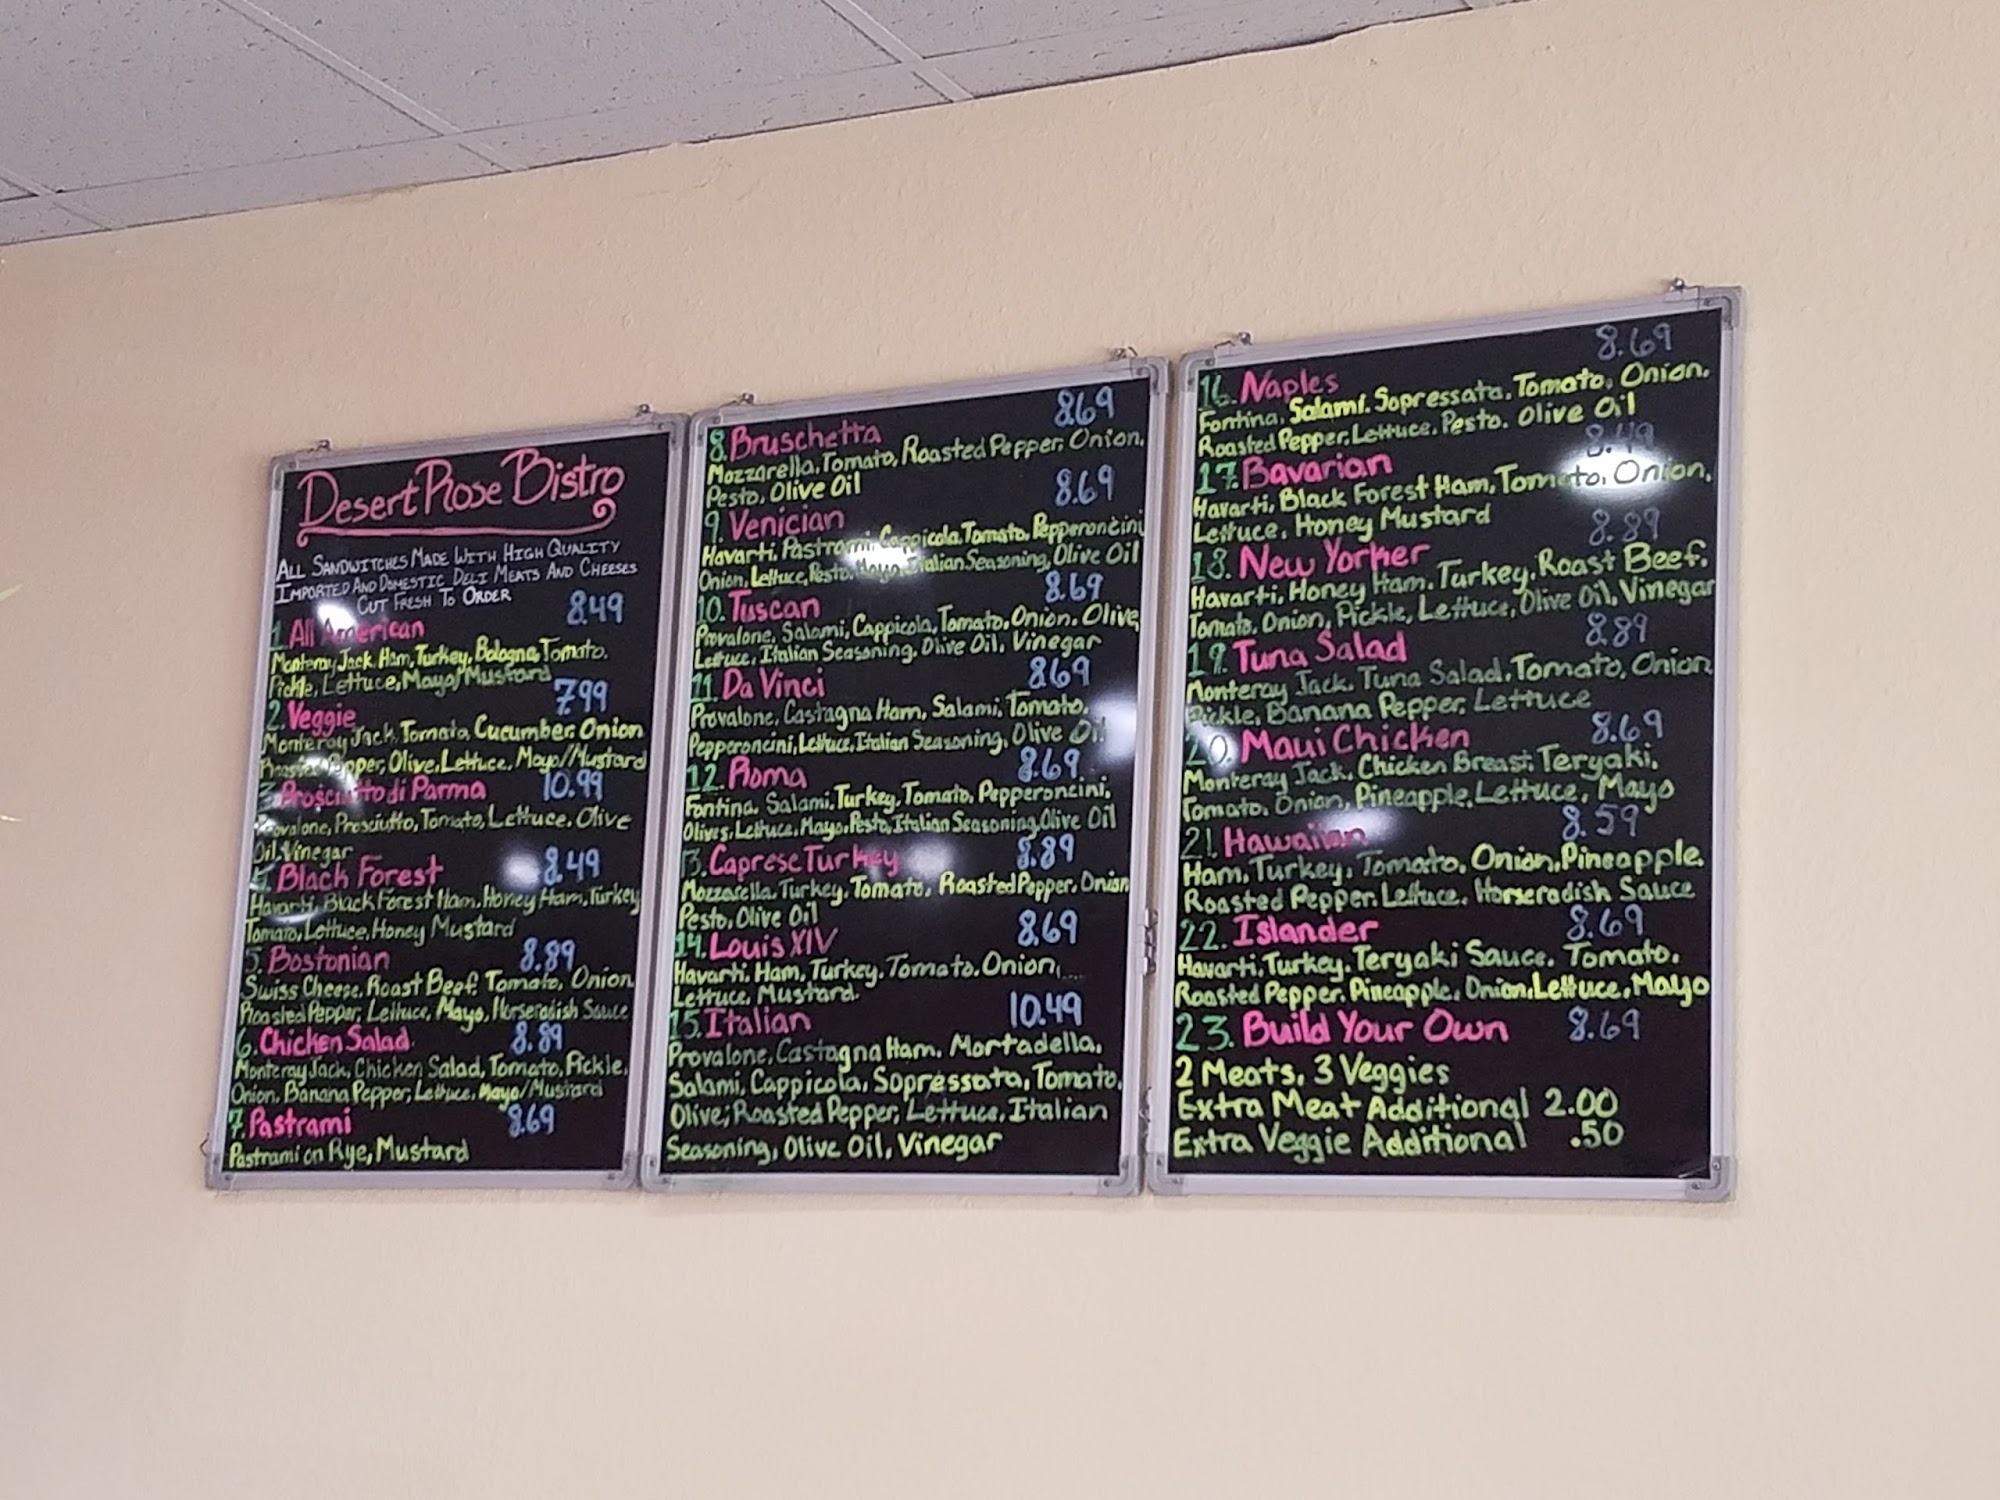 Desert Rose Bistro
ALL SANDWITCHES MADE WITH HIGH QUALITY
IMPORTED AND DOMESTIC DELI MEATS AND CHEESES
CUT FRESH TO ORDER
8.49
1. All American
Monteray Jack, Ham, Turkey, Bologna, Tomato,
Pickle, Lettuce, Mayo/Mustard
7.99
2. Veggie
Monteray Jack, Tomato, Cucumber, Onion
Roasted Pepper, Olive, Lettuce, Mayo/Mustard
3. Prosciutto di Parma 10.99
Provalone, Prosciutto, Tomato, Lettuce, Olive
Oil, Vinegar
4. Black Forest 8.49
Havarti, Black Forest Ham, Honey Ham, Turkey
Tomato, Lettuce, Honey Mustard
5. Bostonian 8.89
Swiss Cheese, Roast Beef, Tomato, Onion
Roasted Pepper, Lettuce, Mayo, Horseradish Sauce
6. Chicken Salad 8.89
Monteray Jack, Chicken Salad, Tomato, Pickle,
Onion, Banana Pepper, Lettuce, Mayo/Mustard
7. Pastrami 8.69
Pastrami on Rye, Mustard
8.69
8. Bruschetta
Mozzarella, Tomato, Roasted Pepper, Onion,
Pesto, Olive Oil
8.69
9. Venician
Havarti, Pastrami, Cappicola, Tomato, Pepperoncini
Onion, Lettuce, Pesto, Mayo, Italian Seasoning, Olive Oil
8.69
10. Tuscan
Provalone, Salami, Cappicola, Tomato, Onion, Olive,
Lettuce, Italian Seasoning, Olive Oil, Vinegar
8.69
11. Da Vinci
Provalone, Castagna Ham, Salami, Tomato,
Pepperoncini, Lettuce, Italian Seasoning, Olive Oil
8.69
12. Roma
Fontina, Salami, Turkey, Tomato, Pepperoncini,
Olives, Lettuce, Mayo, Pesto, Italian Seasoning, Olive Oil
13. Caprese Turkey 8.89
Mozzarella, Turkey, Tomato, Roasted Pepper, Onion
Pesto, Olive Oil
14. Louis XIV 8.69
Havarti, Ham, Turkey, Tomato, Onion,
Lettuce, Mustard
15. Italian 10.49
Provalone, Castagna Ham, Mortadella,
Salami, Cappicola, Sopressata, Tomato,
Olive, Roasted Pepper, Lettuce, Italian
Seasoning, Olive Oil, Vinegar
8.69
16. Naples
Fontina, Salami, Sopressata, Tomato, Onion,
Roasted Pepper, Lettuce, Pesto, Olive Oil
8.49
17. Bavarian
Havarti, Black Forest Ham, Tomato, Onion,
Lettuce, Honey Mustard
8.89
18. New Yorker
Havarti, Honey Ham, Turkey, Roast Beef,
Tomato, Onion, Pickle, Lettuce, Olive Oil, Vinegar
8.89
19. Tuna Salad
Monteray Jack, Tuna Salad, Tomato, Onion
Pickle, Banana Pepper, Lettuce
20. Maui Chicken 8.69
Monteray Jack, Chicken Breast, Teryaki,
Tomato, Onion, Pineapple, Lettuce, Mayo
21. Hawaiian 8.59
Ham, Turkey, Tomato, Onion, Pineapple,
Roasted Pepper, Lettuce, Horseradish Sauce
22. Islander 8.69
Havarti, Turkey, Teryaki Sauce, Tomato,
Roasted Pepper, Pineapple, Onion, Lettuce, Mayo
23. Build Your Own 8.69
2 Meats, 3 Veggies
Extra Meat Additional 2.00
Extra Veggie Additional .50